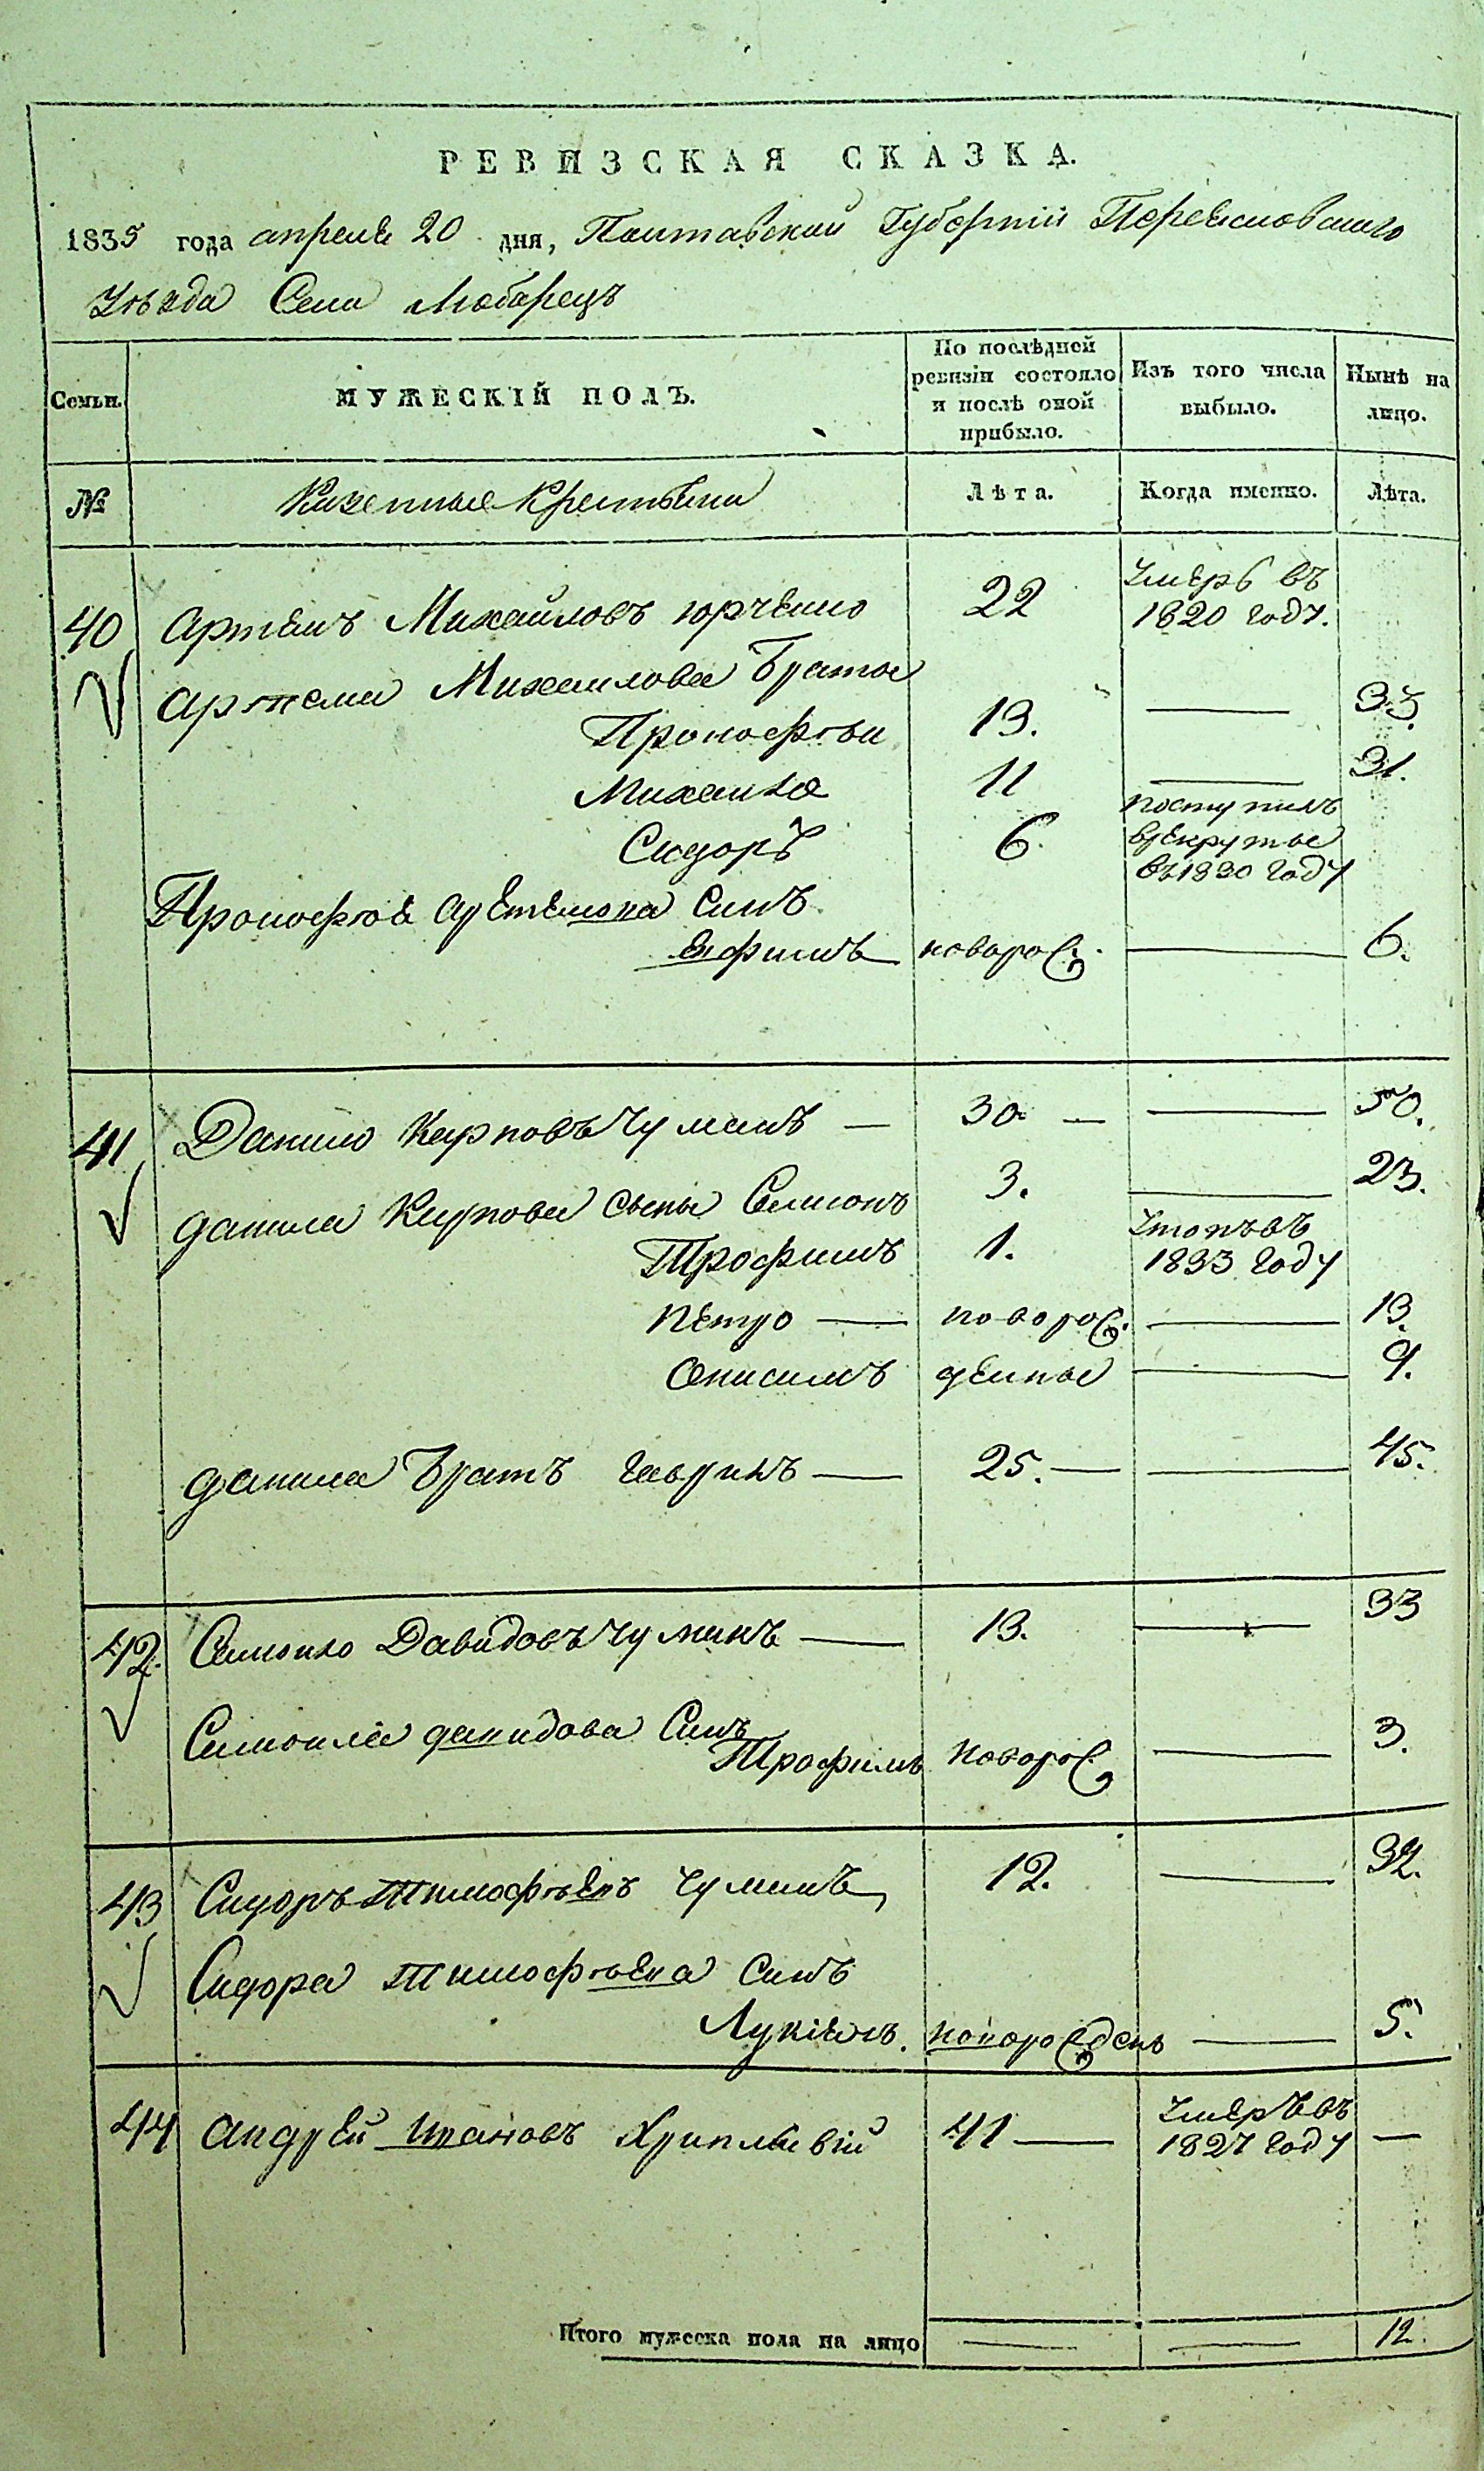 РЕВИЗСКАЯ СКАЗКА.
1835 года апреля 20 дня, Полтавской Губернїи Переяславскаго
Уѣзда Села Любарецъ
Семьи. МУЖЕСКІЙ ПОЛЪ. По послѣдней ревизіи состояло и послѣ оной прибыло. Изъ того числа выбыло. Нынѣ на лицо.
№ Казенные Крестьяни Лѣта. Когда именно. Лѣта.
40 Артемъ Михайловъ юрченко 22 Умеръ въ 1820 году.
Артема Михайлова Братья
Прокофѣи 13. — 33.
Михаила 11 — 31.
Сидоръ 6. поступилъ врекруты въ 1830 году
Прокофѣя Артемова Синъ
Ефимъ новорож. — 6.
41 Данило Карповъ Чумакъ — 30 — — 50.
Данила Карпова сыны Семионъ 3. — 23.
Трофимъ 1. Утопъ въ 1833 году
Петро — новорож. — 13.
Онисимъ дении — 9.
Данила Братъ Гаврилъ — 25. — — 45.
42. Самоило Давидовъ Чумакъ — 13. — 33
Самоила Давидова Синъ
Трофимъ новорож. — 3.
43 Сидоръ Тимофѣевъ Чумакъ, 12. — 32.
Сидора Тимофѣева Синъ
Лукїянъ. новорожденъ — 5.
44 Андрей Ивановъ Хрипливїй 41 — Умеръ въ 1827 году —
Итого мужеска пола на лицо — — 12.